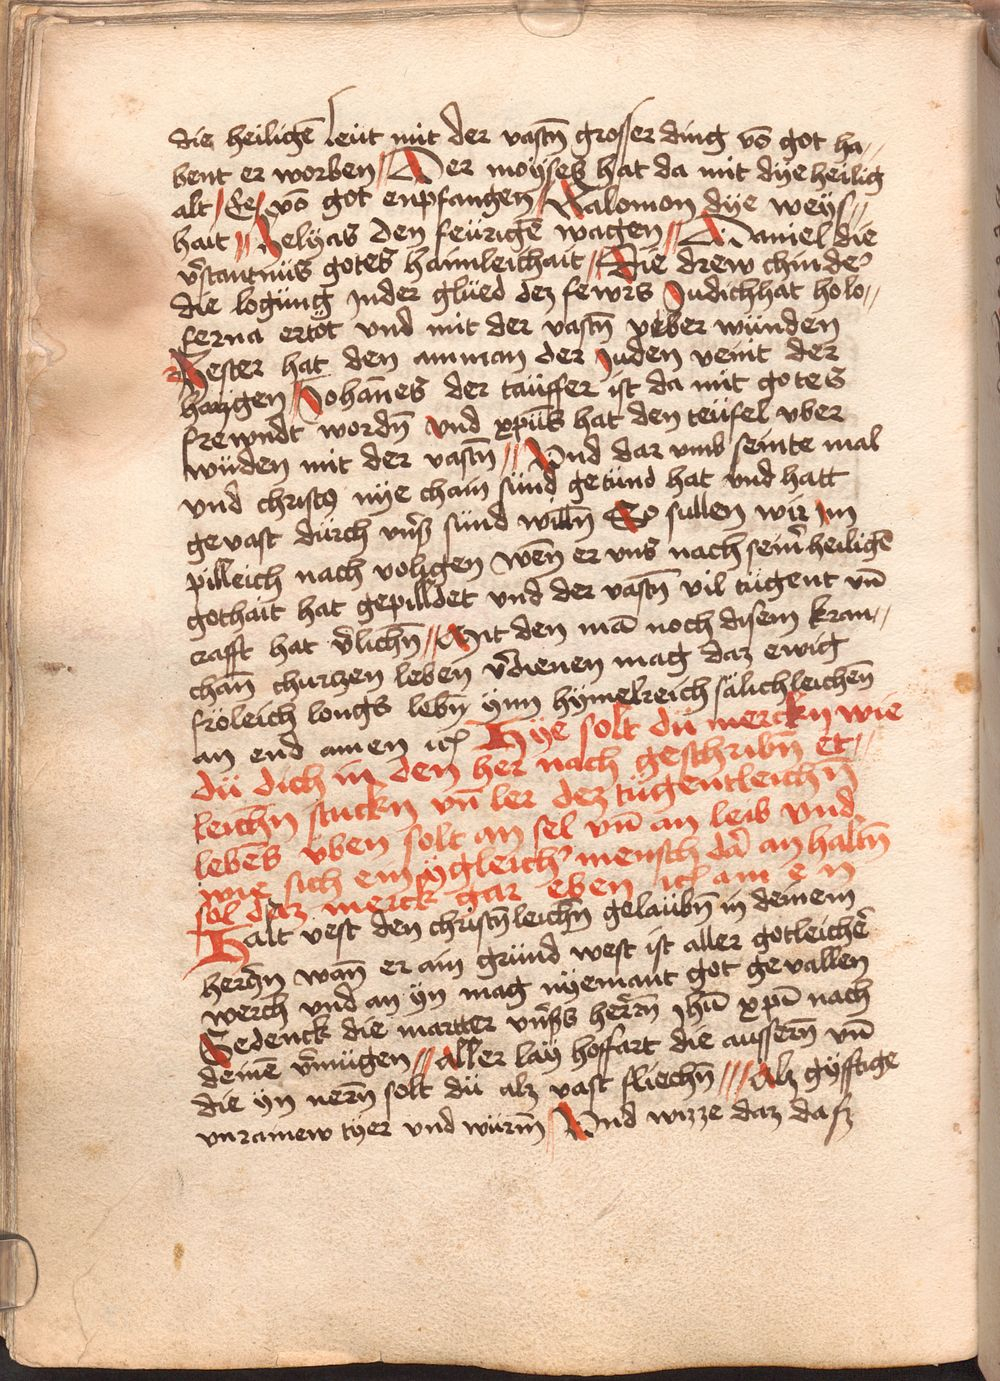 die heiligē leüt mit der vastn̄ grosser ding vō got ha⸗
bent er worben // Der moyses hat da mit dye heilig
alt / Ee / vō got enpfangen // Salomon dye weys⸗
hait // Helyas den feürigē wagen // Daniel die
v̄stantnüs gotes haimleichait // Die drew chinder
die logüng jnder glüed dez fewrs Judich hat holo⸗
ferna ertöt vnd mit der vastn̄ yeber wünden
Hester hat den amman der Juden veint der
hangen // Johānes der taüffer ist da mit gotes
frewndt wordn̄ vnd xp̄us hat den teüfel vber
wüden mit der vastn̄ // Vnd dar vmb seinte mal
vnd christꝰ nye chain sünd getünd hat vnd hatt
gevast dürch vnß sünd willn̄ So sullen wir Im
pilleich nach volgen wēn er vns nach seim̄ heiligē
gothait hat gepilldet vnd der vastn̄ vil tügent vn̄
crafft hat v̄lichn̄ // Mit den mā noch disem kran⸗
chan̄ churczen leben v̄dienen mag daz ewig
fröleich longs lebn̄ ynn hymelreich sälichleichēn
an end amen ꝛc Hye solt dü merckn wie
dü dich in den her nach geschribn̄ et⸗
leichn̄ stuckn vn̄ ler dez tügentleichn̄
lebēs vben solt an sel vn̄ an leib vnd
wie sich ein ygleichˀ mensch dar̄ an haltn̄
sol daz merck gar eben ꝛc am e n
Halt vest den christn̄leichn̄ gelaübn̄ in deinem
herczn̄ wan̄ er ain gründ vest ist aller gotleichē
werch vnd an yn mag nyemant got gevallen
Gedenck die martter vnßs herrn̄ jhū xp̄i nach
deinē v̄mügen // Aller lay hoffart die aussern̄ vn̄
die yn nern̄ solt dü alz vast fliechn̄ /// Alz gyfftige
vnrainew tyer vnd würm̄ // Vnd wizze daz daß